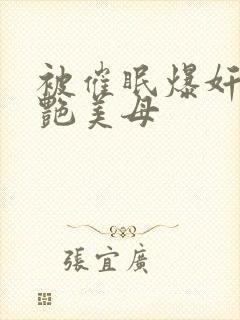 被催眠爆奸
艷美母
張宜廣